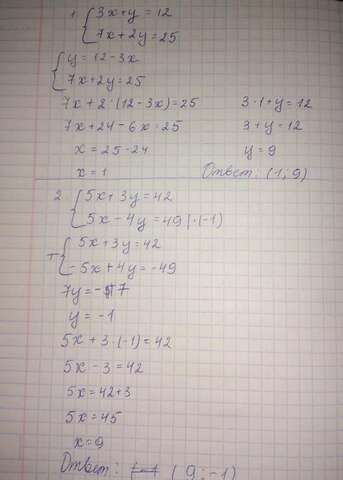 1 { 3x+y=12
7x+2y=25
{ y=12-3x
7x+2y=25
7x+2·(12-3x)=25
7x+24-6x=25
x=25-24
x=1
3·1+y=12
3+y=12
y=9
Ответ: (1; 9)
2 { 5x+3y=42
5x-4y=49 |·(-1)
+ { 5x+3y=42
-5x+4y=-49
7y=-7
y=-1
5x+3·(-1)=42
5x-3=42
5x=42+3
5x=45
x=9
Ответ: (9;-1)